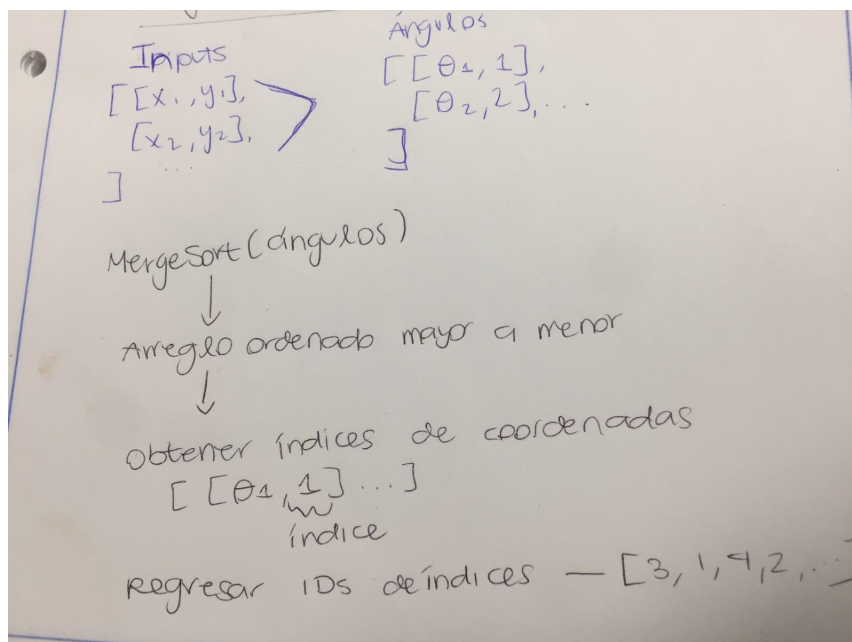 Inputs
[[x1, y1],
[x2, y2],
...
]
Ángulos
[[θ1, 1],
[θ2, 2], ...
]
MergeSort(ángulos)
↓
Arreglo ordenado mayor a menor
↓
Obtener índices de coordenadas
[[θ1, 1] ...]
índice
Regresar IDs de índices — [3, 1, 4, 2, ...]